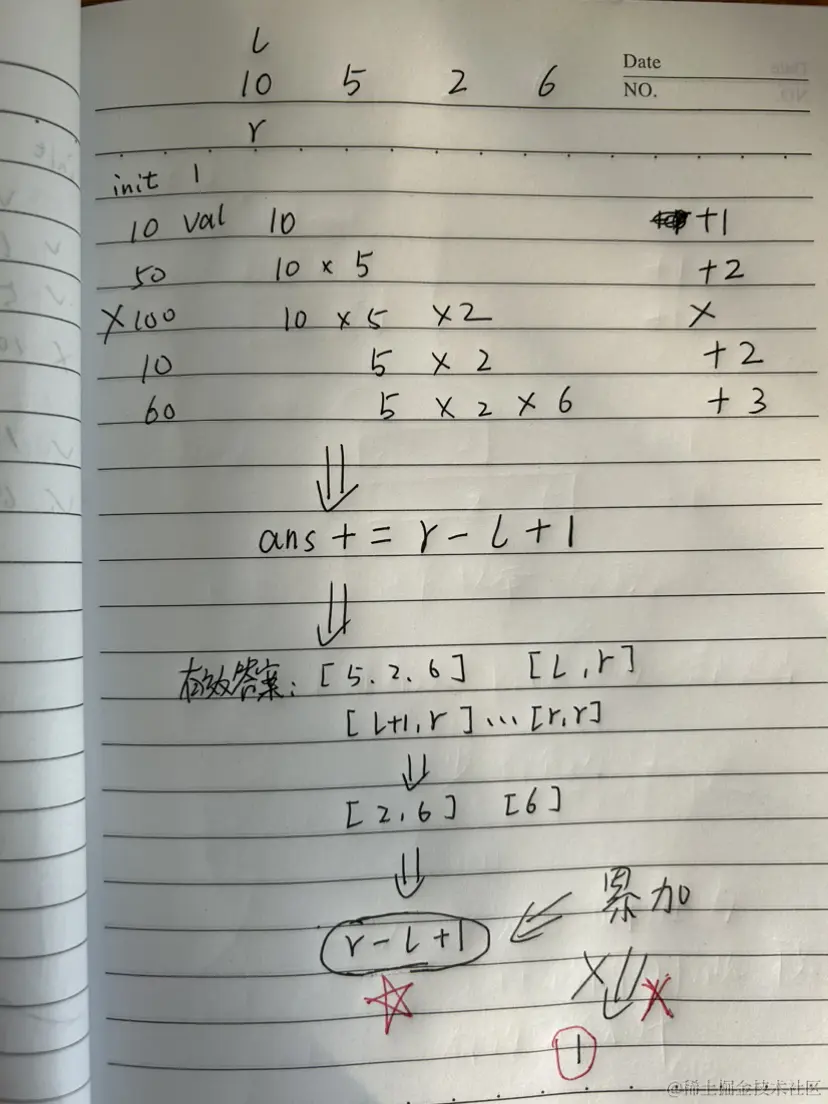 l
Date
10 5 2 6
NO.
r
init 1
10 val 10 +1
50 10 × 5 +2
×100 10 × 5 ×2 ×
10 5 × 2 +2
60 5 × 2 × 6 +3
⇓
ans += r - l + 1
⇓
有效答案: [5、2、6] [l, r]
[l+1, r]...[r, r]
⇓
[2, 6] [6]
⇓
累加
r - l + 1
× ×
1
@稀土掘金技术社区